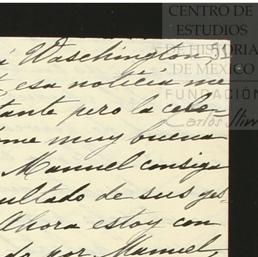 CENTRO DE
ESTUDIOS
DE HISTORIA
DE MÉXICO
FUNDACIÓN
Carlos Slim
Waschington 51
esa noticia me
tante pero la
me muy buena
Manuel consiga
ultado de sus ges-
Ahora estoy con
do por Manuel,